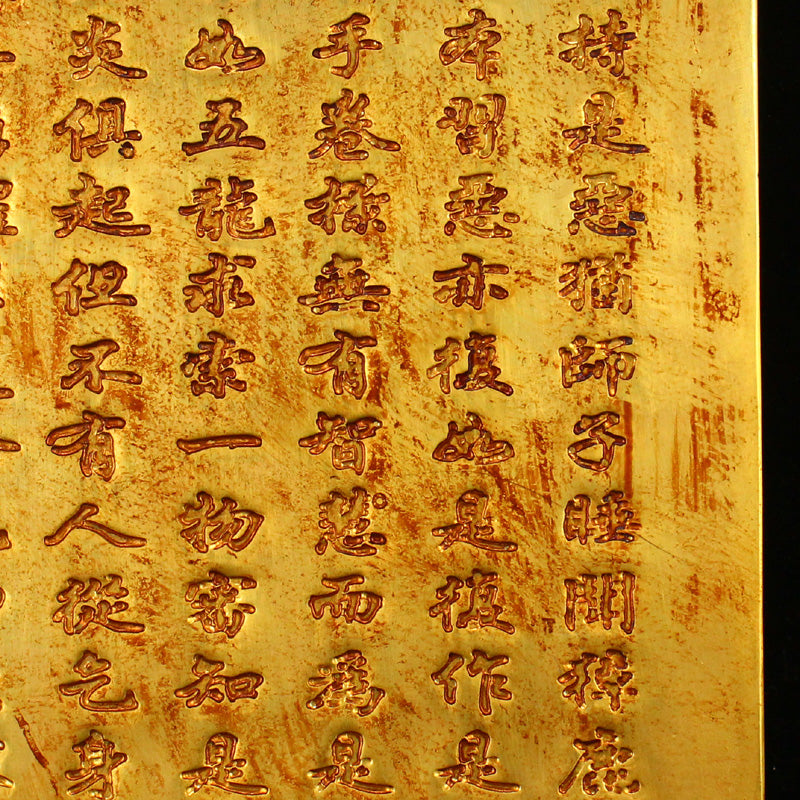 持是惡猶師子睡鹿
本習惡亦復如是復作是
手卷無有智慧而為是
如五龍求索一物審知是
炎俱起但不有人從乞身